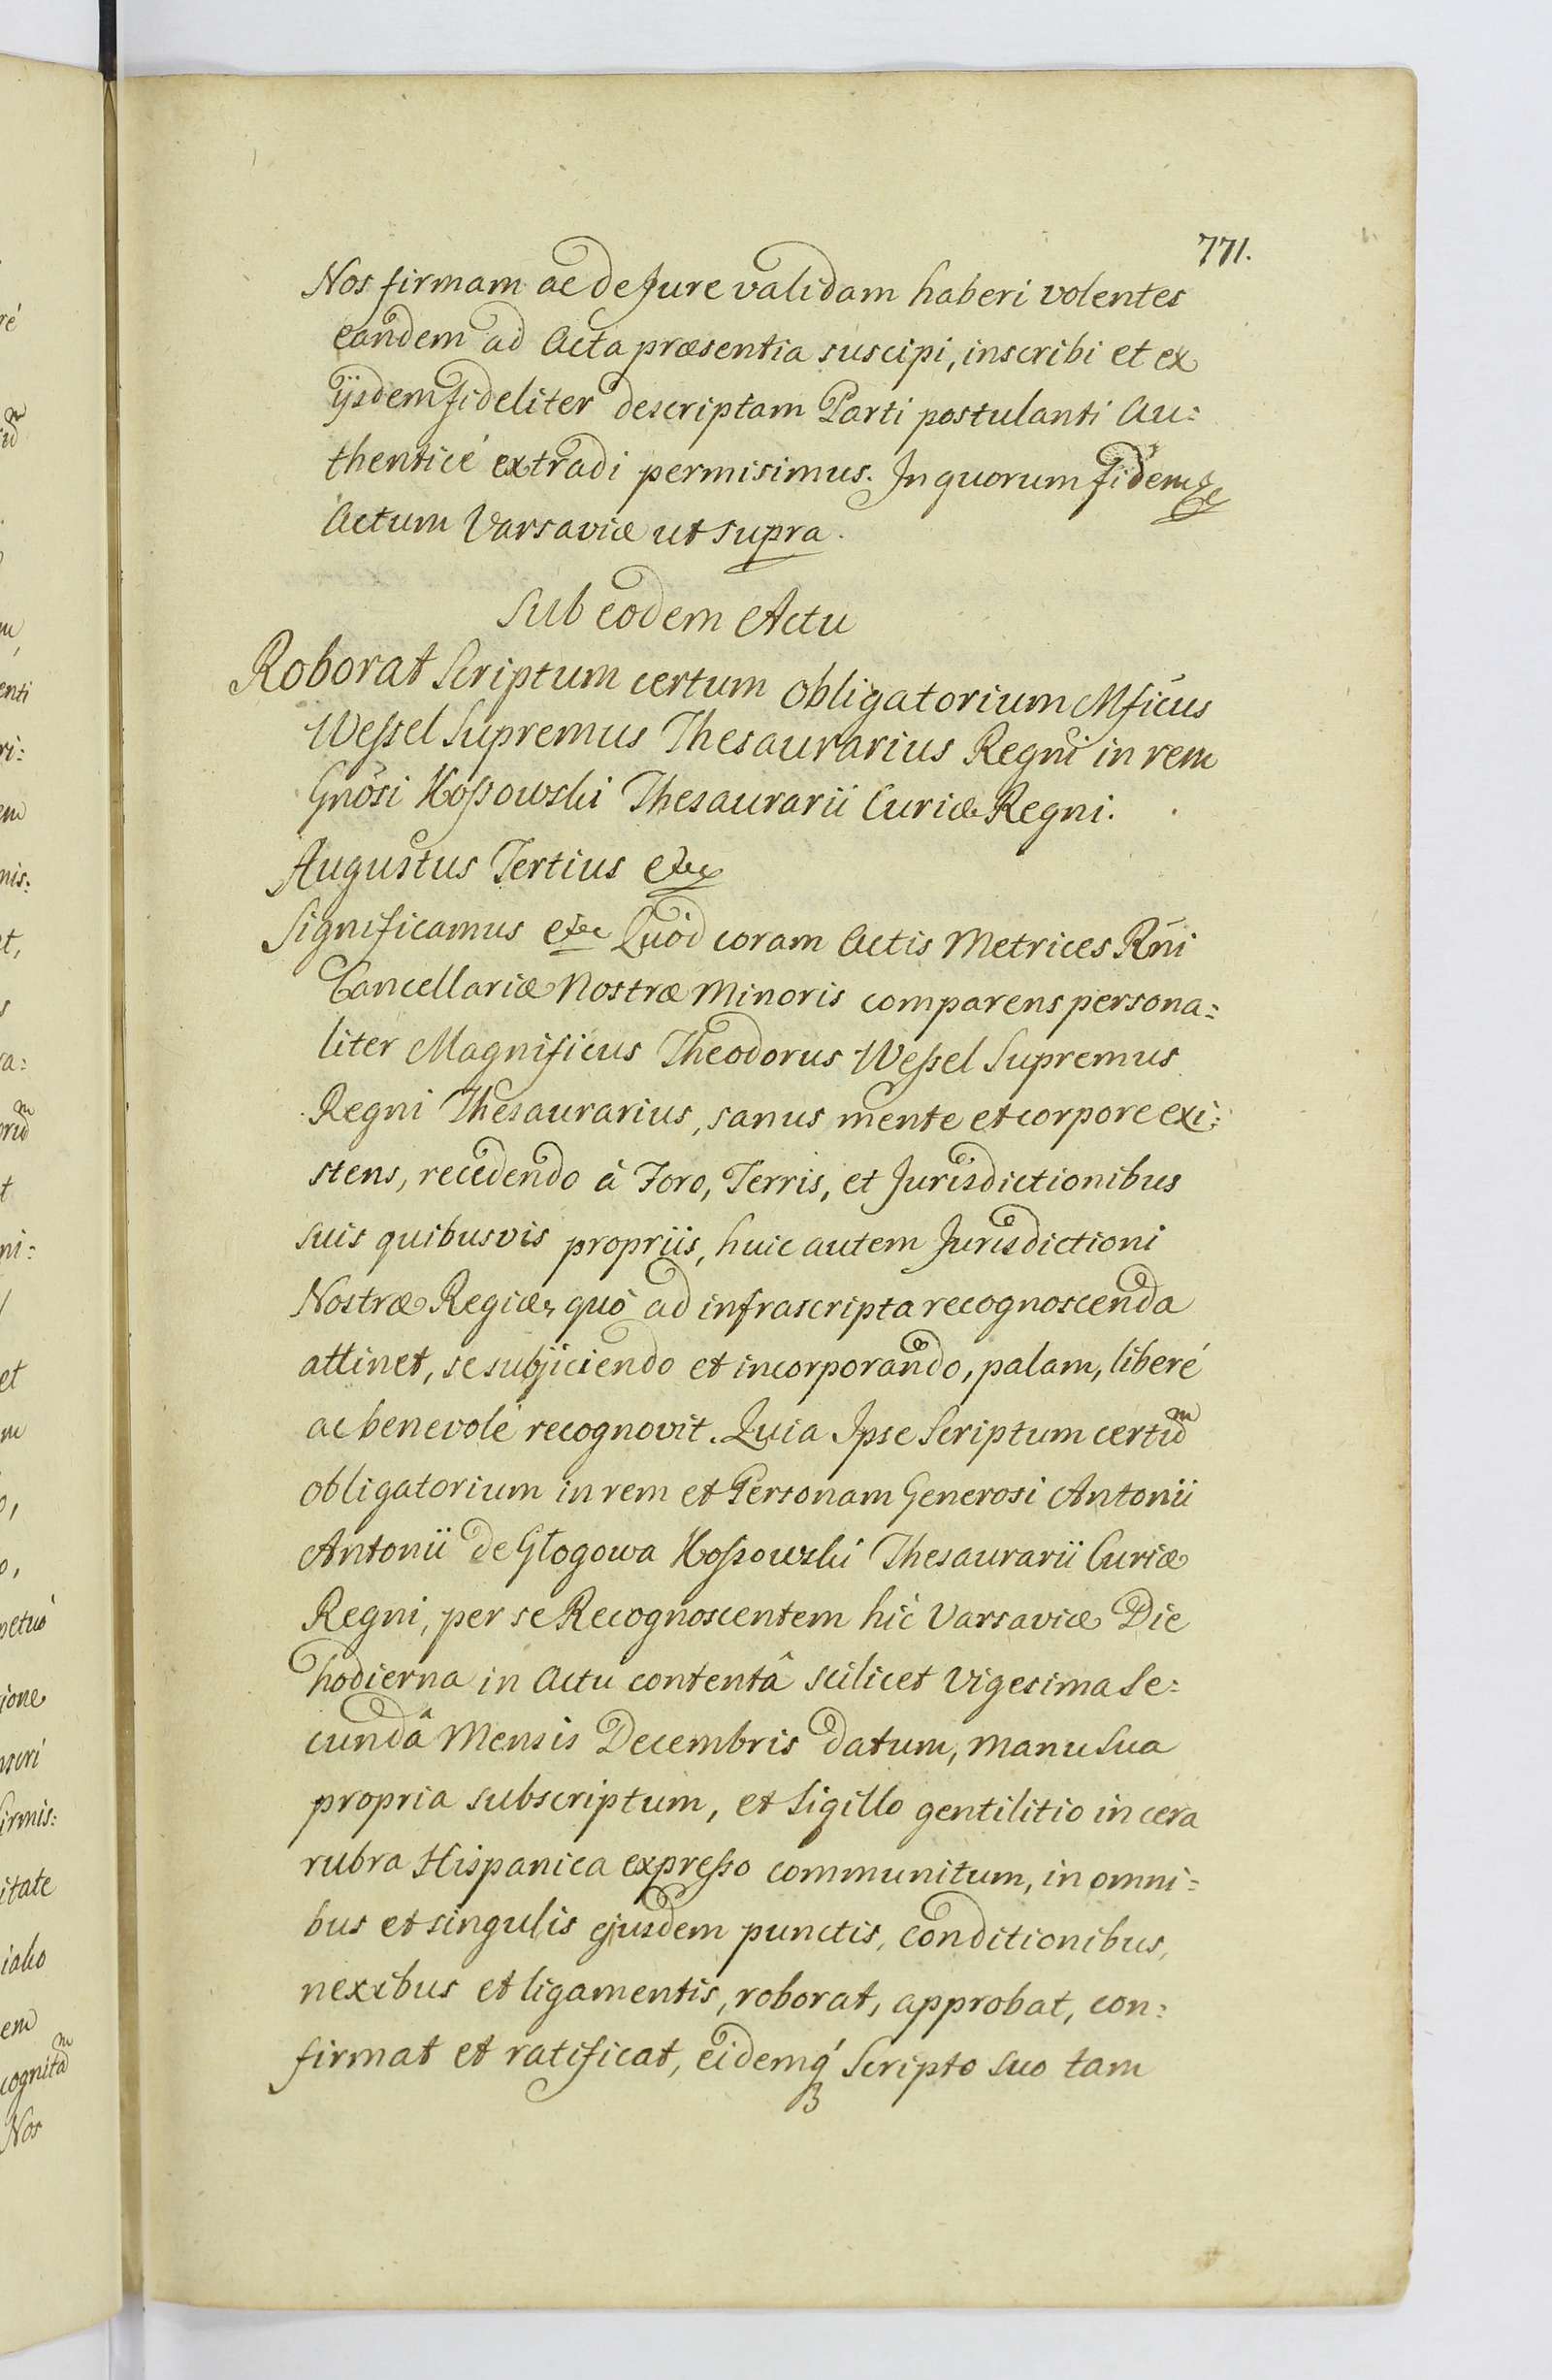 771.
Nos firmam ac de Jure validam haberi volentes
eandem ad Acta præsentia suscipi, inscribi et ex
ijsdem fideliter descriptam Parti postulanti Au:
thenticé extradi permisimus. In quorum fidem &c
Actum Varsaviæ ut supra.
Sub eodem Actu
Roborat Scriptum certum obligatorium Mficus
Wessel Supremus Thesaurarius Regni in rem
Gnosi Kossowski Thesaurarii Curiæ Regni.
Augustus Tertius etc
Significamus etc Quòd coram Actis Metrices Rñi
Cancellariæ Nostræ Minoris comparens persona:
liter Magnificus Theodorus Wessel Supremus
Regni Thesaurarius, sanus mente et corpore exi:
stens, recedendo à Foro, Terris, et Jurisdictionibus
suis quibusvis propriis, huic autem Jurisdictioni
Nostræ Regiæ, quò ad infrascripta recognoscenda
attinet, se subjiciendo et incorporando, palam, liberé
ac benevolé recognovit. Quia Ipse Scriptum certũ
obligatorium in rem et Personam Generosi Antonii
Antonii de Głogowa Kossowski Thesaurarii Curiæ
Regni, per se Recognoscentem hic Varsaviæ Die
hodierna in Actu contentâ scilicet Vigesima Se:
cundâ Mensis Decembris datum, manu sua
propria subscriptum, et Sigillo gentilitio in cera
rubra Hispanica expresso communitum, in omni:
bus et singulis ejusdem punctis, conditionibus,
nexibus et ligamentis, roborat, approbat, con:
firmat et ratificat, eidemq́ Scripto suo tam